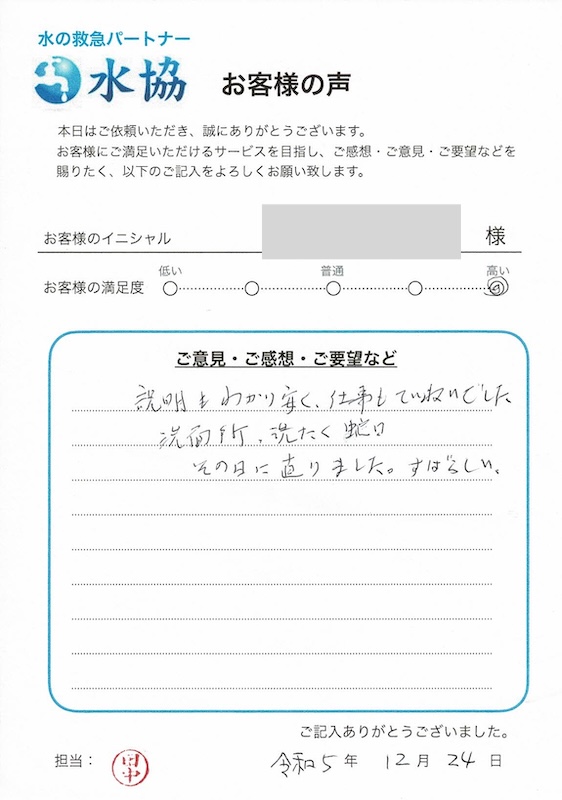 水の救急パートナー
水協 お客様の声
本日はご依頼いただき、誠にありがとうございます。
お客様にご満足いただけるサービスを目指し、ご感想・ご意見・ご要望などを
賜りたく、以下のご記入をよろしくお願い致します。
お客様のイニシャル 様
低い 普通 高い
お客様の満足度
ご意見・ご感想・ご要望など
説明もわかり安く、仕事もていねいでした
洗面所、洗たく蛇口
その日に直りました。すばらしい。
ご記入ありがとうございました。
担当： 田中 令和5年 12月 24日